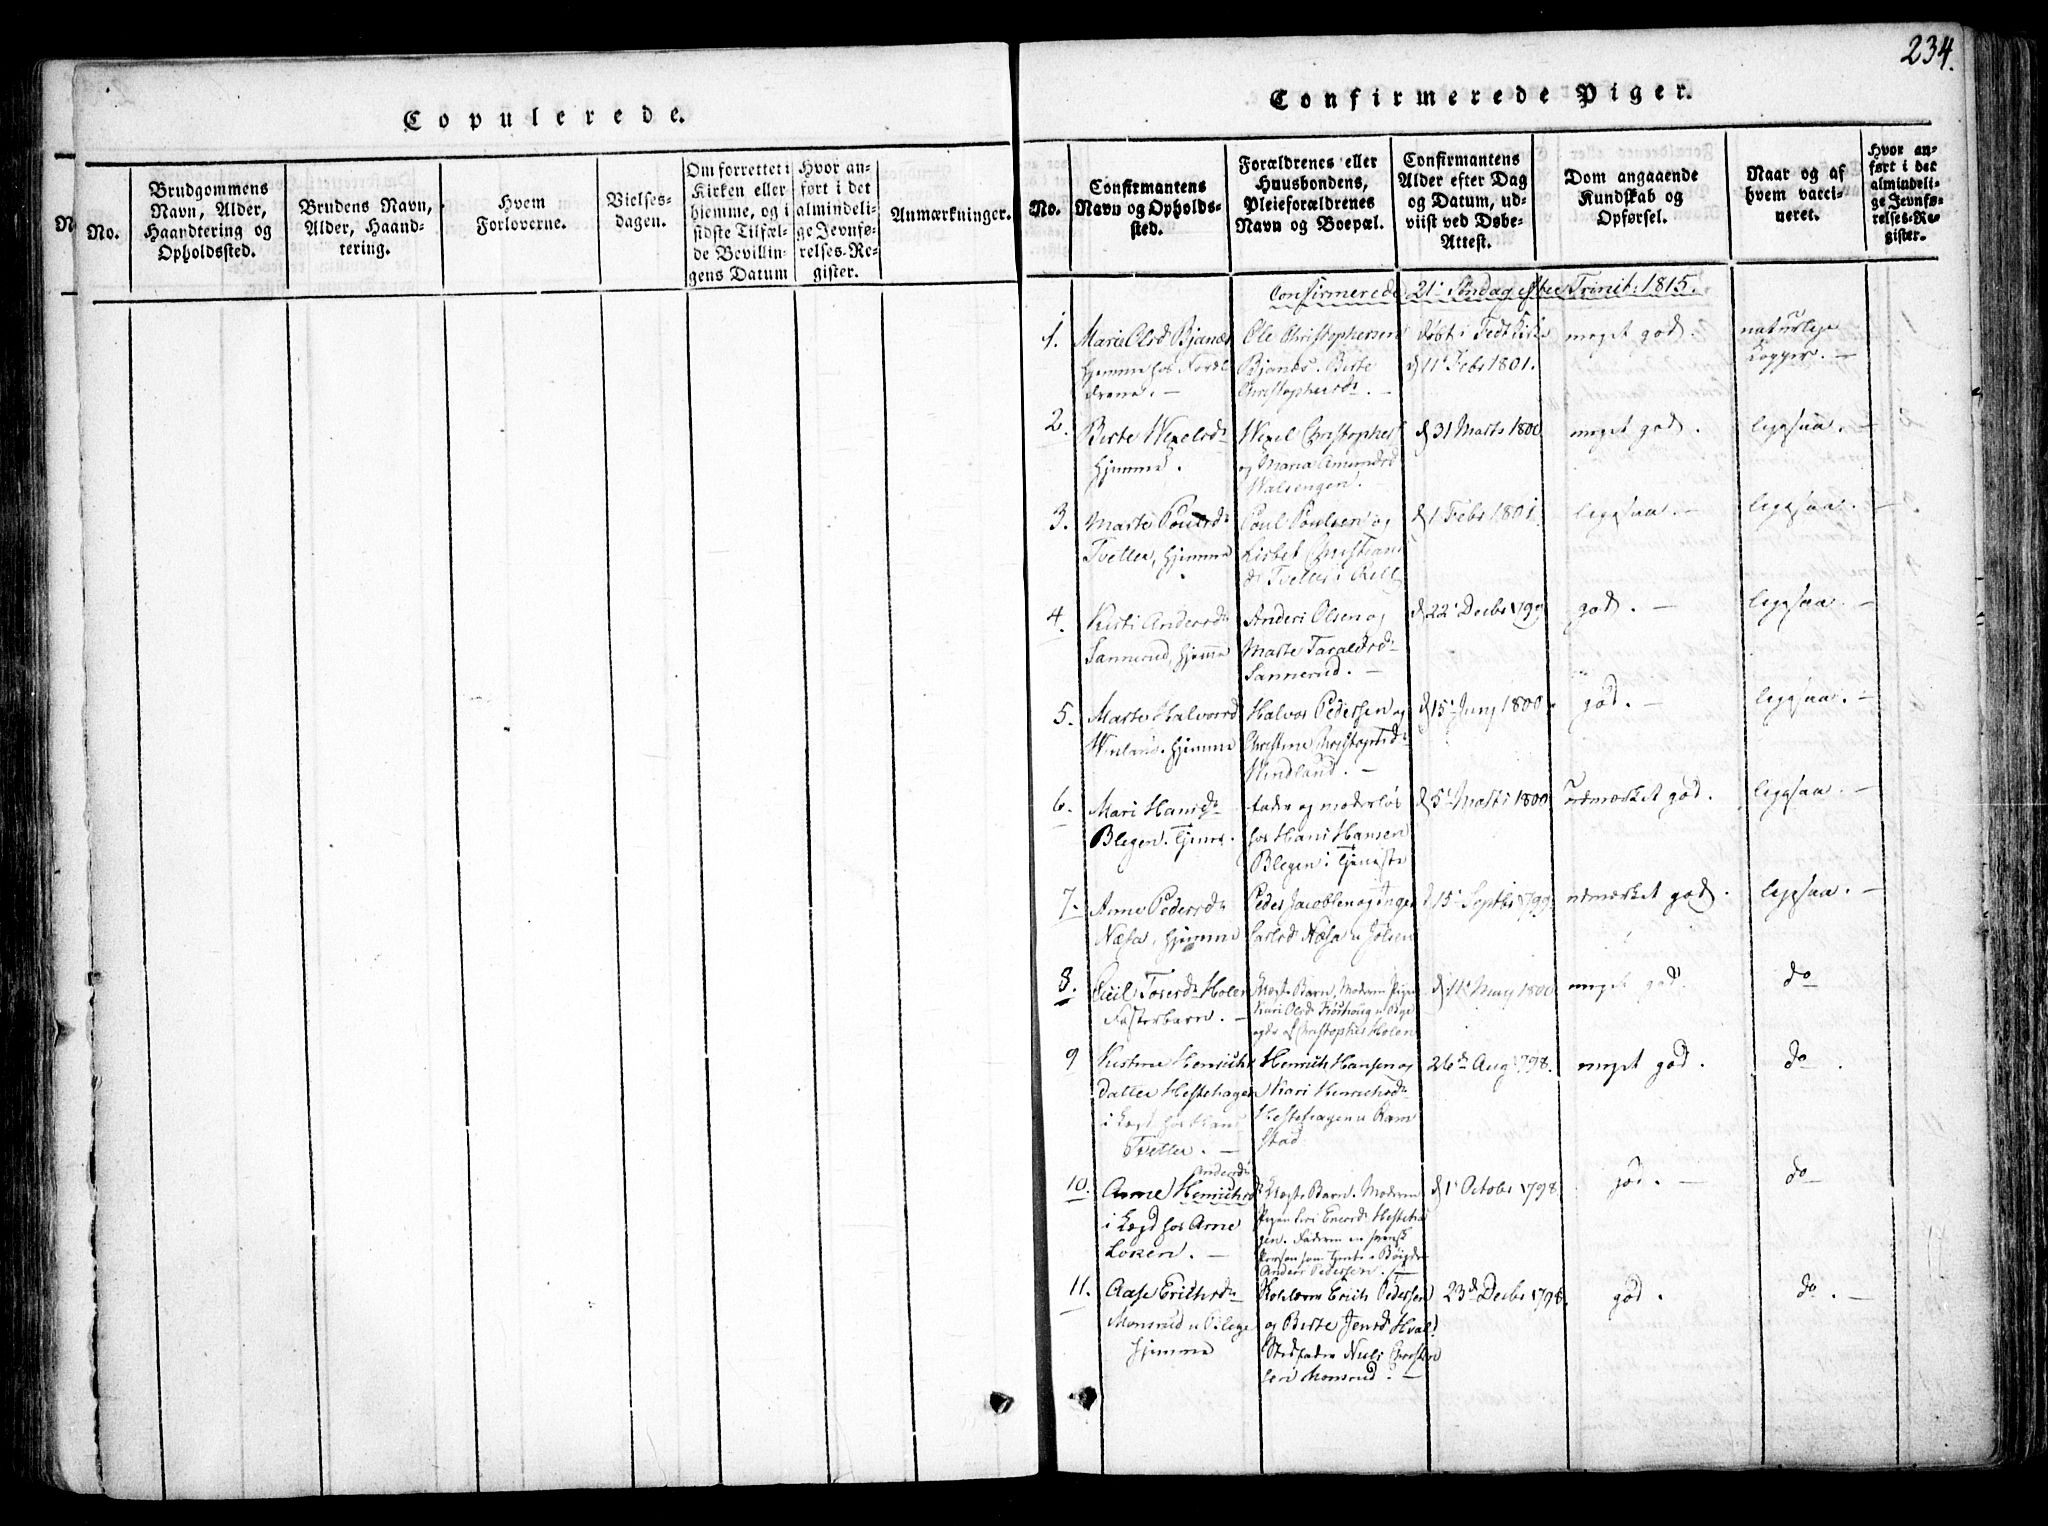 234.
Copulerede.
No.
Brudgommens Navn, Alder, Haandtering og Opholdssted.
Brudens Navn, Alder, Haandtering.
Hvem Forloverne.
Vielsesdagen.
Om forrettet i Kirken eller hjemme, og i sidste Tilfælde Bevillingens Datum
Hvor anført i det almindelige Jevnførelses-Register.
Anmærkninger.
Confirmerede Piger.
No.
Confirmantens Navn og Opholdssted.
Forældrenes eller Huusbondens, Pleieforældrenes Navn og Boepæl.
Confirmantens Alder efter Dag og Datum, udviist ved Døbe-Attest.
Dom angaaende Kundskab og Opførsel.
Naar og af hvem vaccineret.
Hvor anført i det almindelige Jevnførelses-Register.
Confirmerede 21' Søndag efter Trinit: 1815.
1.
Maria Olsd Bjanæs
hjemme hos Forældrene. —
Ole Christophersen
Bjanæs. Berte
Christophersd. —
døbt i Fedt Kirke
d 11' Febr 1801.
meget god.
naturlige
Kopper. —
2.
Berte Wexelsdr
hjemme.
Wexel Christophers
og Maria Amundsd
d 31 Marts 1800
meget god.
ligesaa. —
3.
Marte Poulsdr
Tvetter, hjemme
Poul Poulsen og
Lisbet Christians
d 1 Febr 1801.
ligesaa. —
ligesaa. —
4.
Kirsti Andersdr
Sannerud, hjemme
Anders Olsen og
Marte Taraldsdr
Sannerud. —
d 22' Decbr 1799
god. —
ligesaa. —
5.
Marte Halvorsd
Winland. hjemme
Halvor Pedersen og
Christine Christophsdr
Windland. —
d 15' Juny 1800
god. —
ligesaa. —
6.
Mari Hansdr
Blegen. tjener.
fader og moderløs
hos Hans Hansen
Blegen i tjeneste
d 5' Marts 1800
udmærket god.
ligesaa. —
7.
Anne Pedersdr
Næsa, hjemme
Peder Jacobsen og Inger
Carlsd Næsa u Jølsen
d 15' Septbr 1799
udmærket god.
ligesaa. —
8.
Holen
Fosterbarn. —
Uægte Barn, Moderen Pigen
Kari Olsd
af Christopher Holen
May 1800
meget god.
do
9
Kirstine Henrichs
datter Hestehagen
i Lægd hos Hans
Tvetter. —
Henrich Hansen og
Kari Henrichsdr
Hestehagen u Ramstad
26d Aug 1798.
meget god.
do.
10.
Andersdr
Anne Henrichsd
i Lægd hos Arne
Loken. —
Uægte Barn. Moderen
Pigen Siri Enersd Hestehagen. Faderen en svensk
Person som tjente i Bøigden
Anders Pedersen. —
d 1' Octobr 1798.
god. —
do
11.
Aase Erichsdr
Monsrud u Blege
hjemme
Erich Pedersen
og Berte Jensd Hval.
Stedfader Niels Christensen Monsrud. —
23d Decbr 1798.
god.
do. —